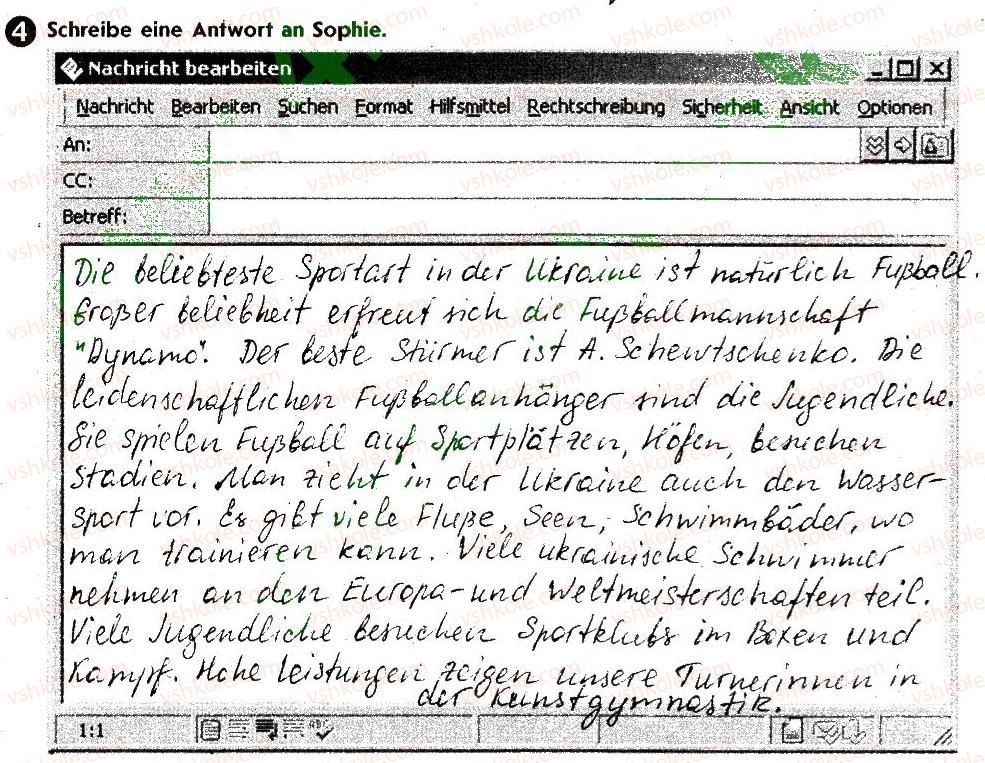 4 Schreibe eine Antwort an Sophie.
Nachricht bearbeiten
Nachricht Bearbeiten Suchen Format Hilfsmittel Rechtschreibung Sicherheit Ansicht Optionen
An:
CC:
Betreff:
Die beliebteste Sportart in der Ukraine ist natürlich Fußball.
Großer beliebheit erfreut sich die Fußballmannschaft
"Dynamo". Der beste Stürmer ist A. Schewtschenko. Die
leidenschaftlichen Fußballanhänger sind die Jugendliche.
Sie spielen Fußball auf Sportplätzen, Höfen, besuchen
Stadien. Man zieht in der Ukraine auch den Wasser-
sport vor. Es gibt viele Fluße, Seen, Schwimmbäder, wo
man trainieren kann. Viele ukrainische Schwimmer
nehmen an den Europa-und Weltmeisterschaften teil.
Viele Jugendliche besuchen Sportklubs im Boxen und
Kampf. Hohe Leistungen zeigen unsere Turnerinnen in
der Kunstgymnastik.
1:1
ABC
vshkole.com